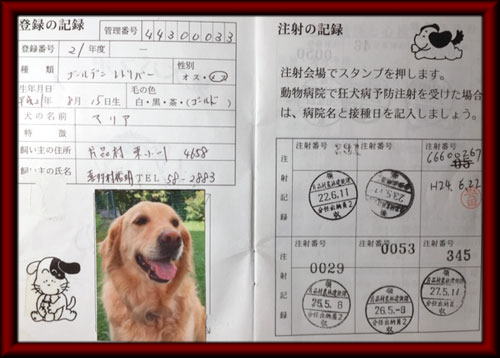 登録の記録
管理番号 44300033
登録番号 21年度 —
種類 ゴールデンレトリバー 性別 オス・メス
生年月日 平成21年 8月15日生
毛の色 白・黒・茶・(ゴールド)
犬の名前 マリア
特徴
飼い主の住所 片品村 東小川 4658
飼い主の氏名 TEL 58-2883
注射の記録
注射会場でスタンプを押します。
動物病院で狂犬病予防注射を受けた場合
は、病院名と接種日を記入しましょう。
注射記録
注射番号 291
22.6.11
注射番号
23.5.11
注射番号
H24.6.22
注射記録
注射番号 0029
25.5.8
注射番号 0053
26.5.-8
注射番号 345
27.5.11